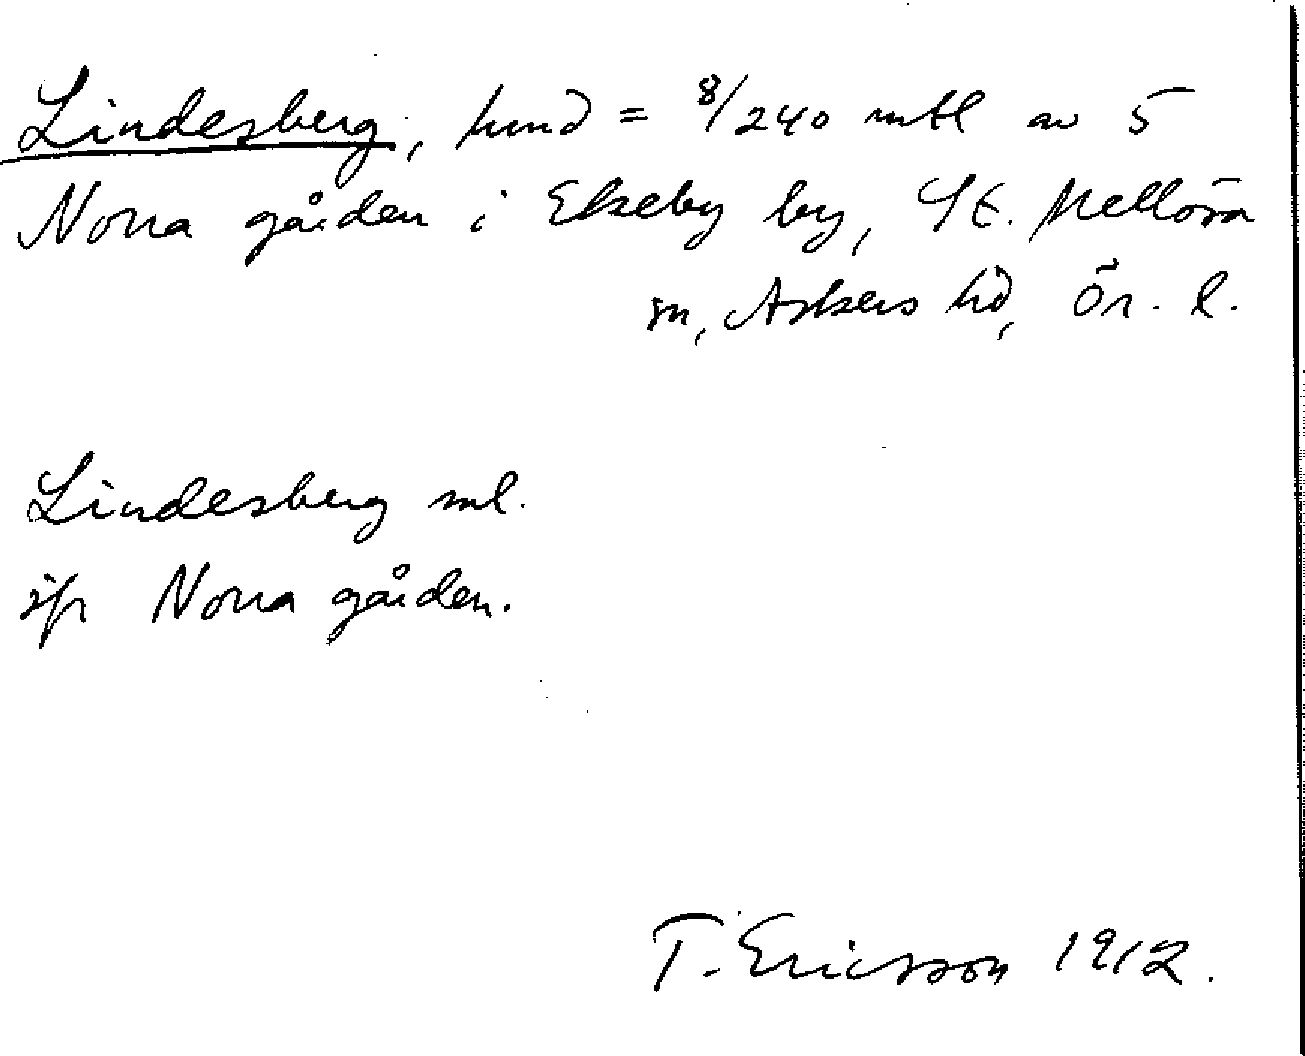 Lindesberg, hmd = 8/240 mtl av 5
Norra gården i Ekeby by, St. Mellösa
sn, Askers hd, Ör. l.
Lindesberg ml.
jfr Norra gården.
T. Ericsson 1912.